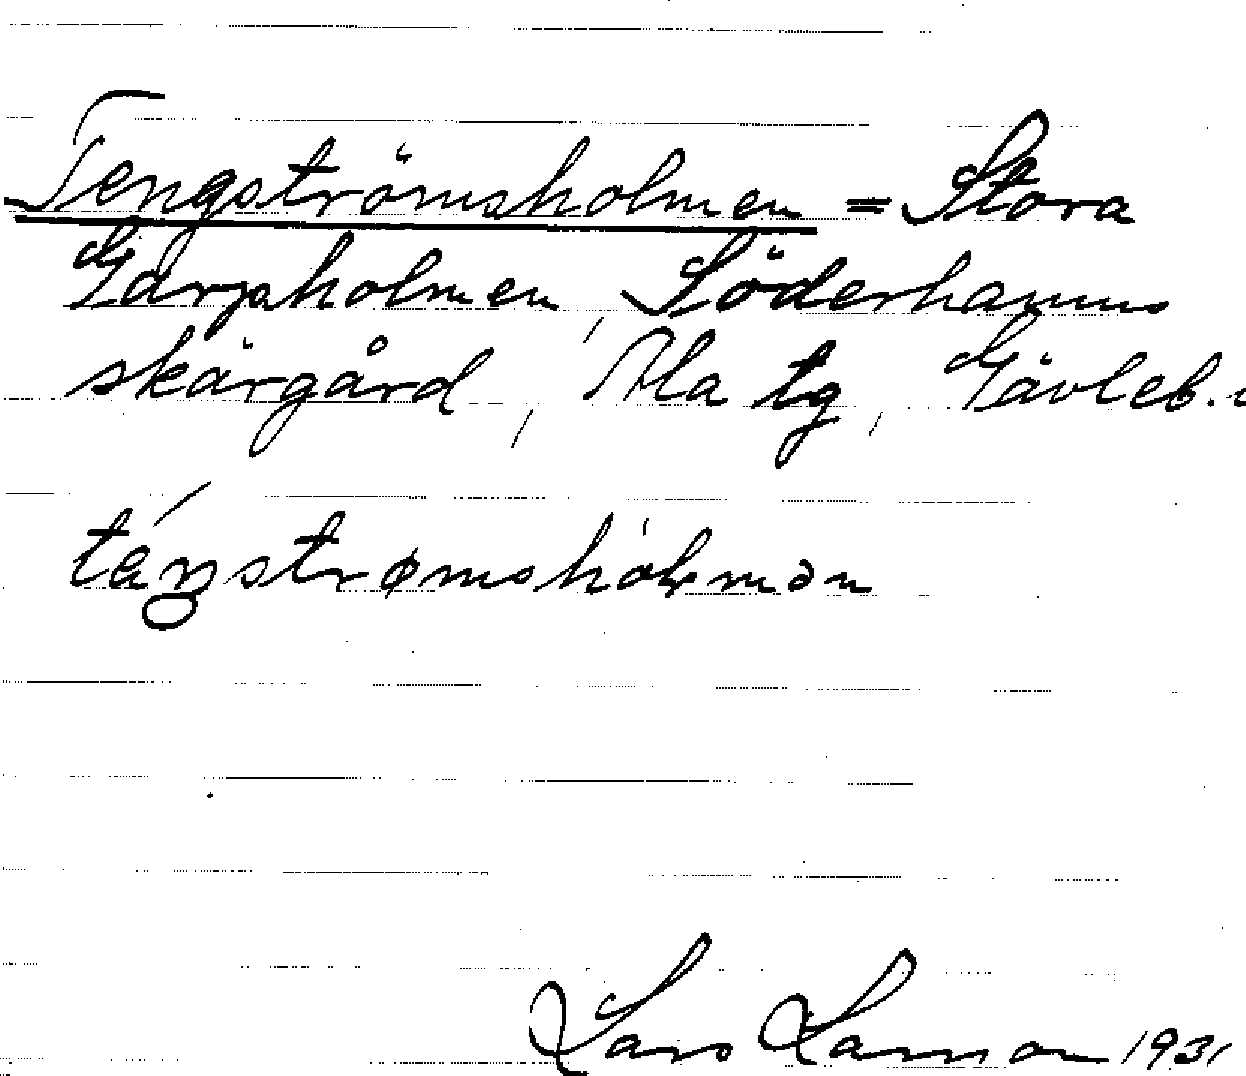 Tengströmsholmen = Stora
Garpholmen, Söderhamns
skärgård, Ala tg, Gävleb.
téŋstrømshòlmən
Lars Larsson 1931